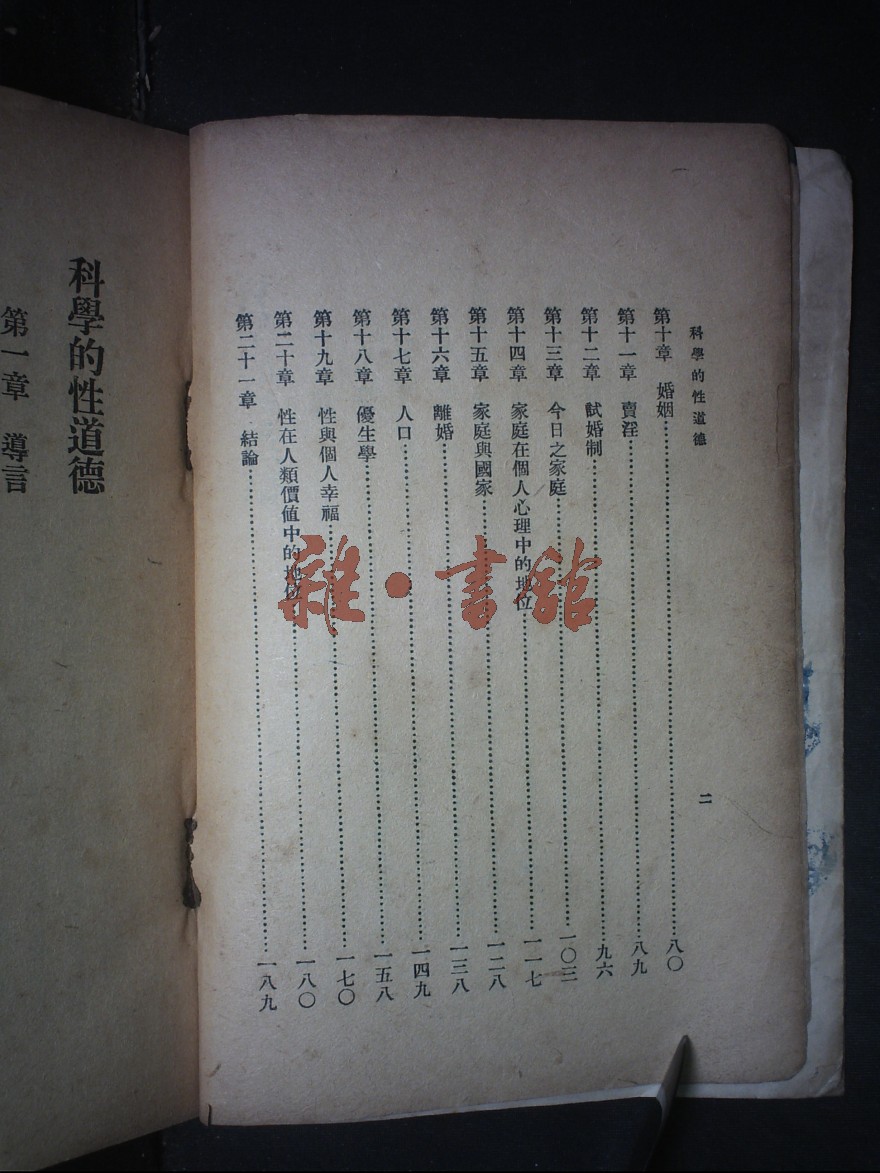 科學的性道德
二
第十章　婚姻……八〇
第十一章　賣淫……八九
第十二章　試婚制……九六
第十三章　今日之家庭……一〇三
第十四章　家庭在個人心理中的地位……一一七
第十五章　家庭與國家……一二八
第十六章　離婚……一三八
第十七章　人口……一四九
第十八章　優生學……一五八
第十九章　性與個人幸福……一七〇
第二十章　性在人類價值中的地位……一八〇
第二十一章　結論……一八九
科學的性道德
第一章　導言
雜·書館